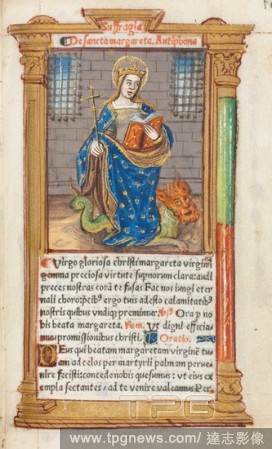 Suffragia
De sancta margareta. Antiphona
Virgo gloriosa christi margareta virginū
gemma preciosa virtute signorum clara: audi
preces nostras corā te fusas fac nos iungi eter
nali choro
ergo tuis adesto calamitatib⁹
nostris quibus vndiq; premimur. Ora p no
bis beata margareta. Vt digni efficia
mur promissionibus christi. Oratio.
Deus qui beatam margaretam virginē tu
am ad celos per martyrii palmam perue
nire fecisti: concede nobis quesumus: vt eius
empla sectantes: ad te venire valeamus Per.
TPG
www.tpgnews.com/達志影像